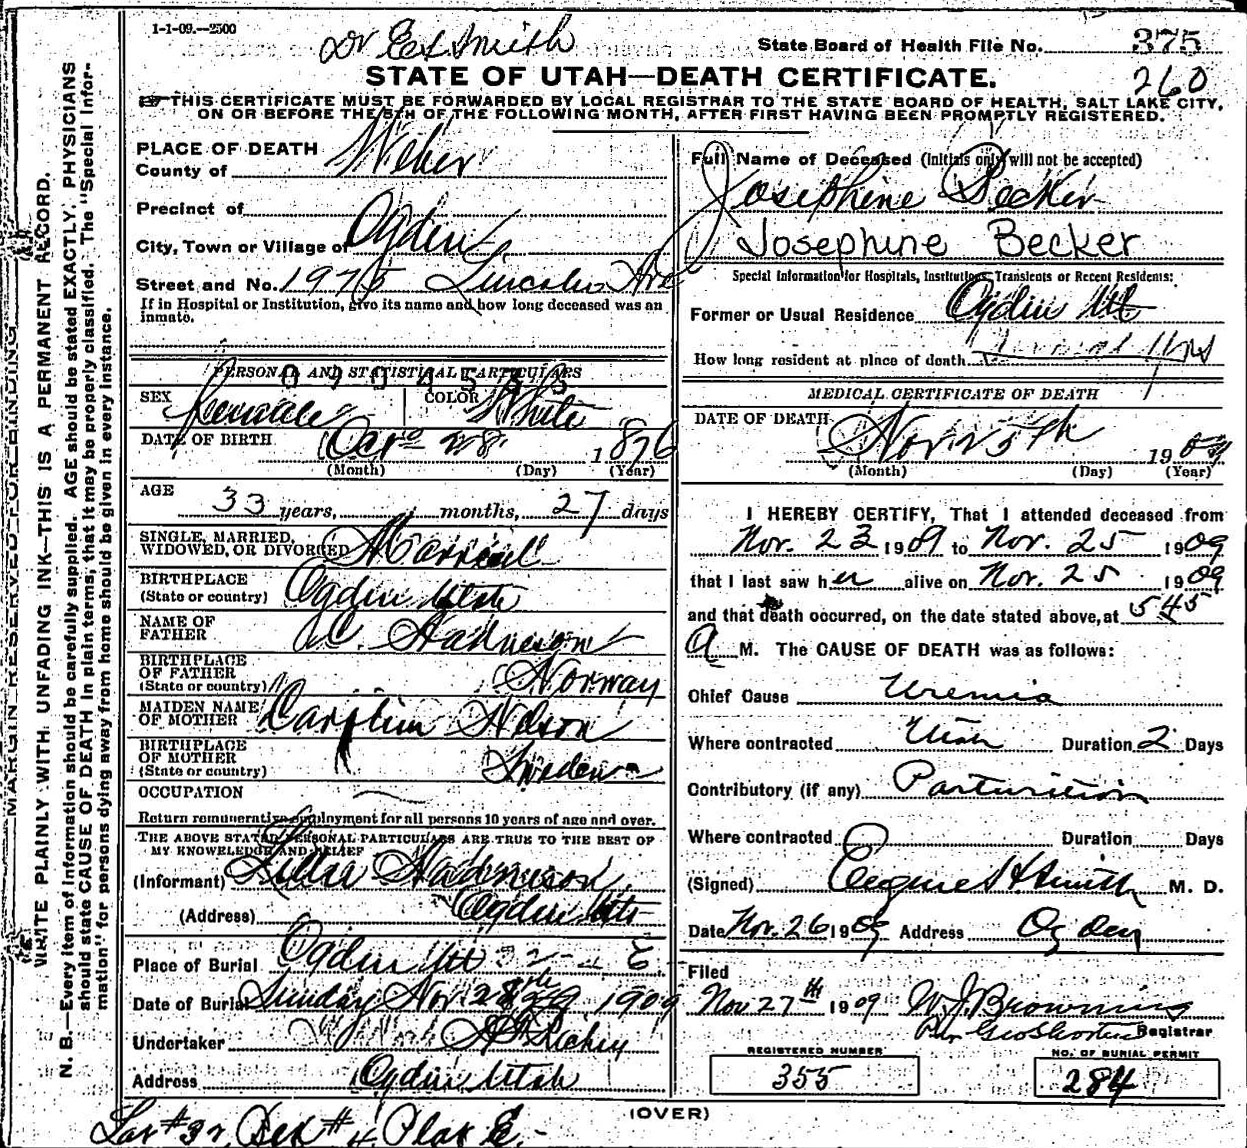 1-1-09.—2500
Dr E. S. Smith
State Board of Health File No. 375
STATE OF UTAH—DEATH CERTIFICATE.
260
THIS CERTIFICATE MUST BE FORWARDED BY LOCAL REGISTRAR TO THE STATE BOARD OF HEALTH, SALT LAKE CITY,
ON OR BEFORE THE 5TH OF THE FOLLOWING MONTH, AFTER FIRST HAVING BEEN PROMPTLY REGISTERED.
MARGIN RESERVED FOR BINDING
WRITE PLAINLY WITH UNFADING INK—THIS IS A PERMANENT RECORD.
N. B.—Every item of information should be carefully supplied. AGE should be stated EXACTLY. PHYSICIANS
should state CAUSE OF DEATH in plain terms, that it may be properly classified. The "Special Infor-
mation" for persons dying away from home should be given in every instance.
PLACE OF DEATH
County of Weber
Precinct of
City, Town or Village of Ogden
Street and No. 1975 Lincoln Ave
If in Hospital or Institution, give its name and how long deceased was an
inmate.
PERSONAL AND STATISTICAL PARTICULARS
SEX Female COLOR White
DATE OF BIRTH 28 1876
(Month) (Day) (Year)
AGE
33 years, months, 27 days
SINGLE, MARRIED,
WIDOWED, OR DIVORCED Married
BIRTHPLACE
(State or country) Ogden Utah
NAME OF
FATHER
BIRTHPLACE
OF FATHER
(State or country) Norway
MAIDEN NAME
OF MOTHER Nelson
BIRTHPLACE
OF MOTHER
(State or country) Sweden
OCCUPATION
Return remunerative employment for all persons 10 years of age and over.
THE ABOVE STATED PERSONAL PARTICULARS ARE TRUE TO THE BEST OF
MY KNOWLEDGE AND BELIEF
(Informant)
(Address) Ogden Ut
Place of Burial Ogden Ut 32-4 E
Date of Burial Sunday Nov 28th 1909
Undertaker
Address Ogden Utah
Lot #32, Blk #4 Plat E.-
Full Name of Deceased (Initials only will not be accepted)
Josephine Becker
Josephine Becker
Special Information for Hospitals, Institutions, Transients or Recent Residents:
Former or Usual Residence Ogden Ut
How long resident at place of death
MEDICAL CERTIFICATE OF DEATH
DATE OF DEATH
Nov 25th 1909
(Month) (Day) (Year)
I HEREBY CERTIFY, That I attended deceased from
Nov. 23 1909 to Nov. 25 1909
that I last saw her alive on Nov. 25 1909
and that death occurred, on the date stated above, at 545
A M. The CAUSE OF DEATH was as follows:
Chief Cause Uremia
Where contracted Utah Duration 2 Days
Contributory (if any) Parturition
Where contracted Duration Days
(Signed) Eugene H Smith M. D.
Date Nov. 26 1909 Address Ogden
Filed
Nov 27th 1909 W J Browning
Per Geo Shorten Registrar
REGISTERED NUMBER
355
NO. OF BURIAL PERMIT
284
(OVER)